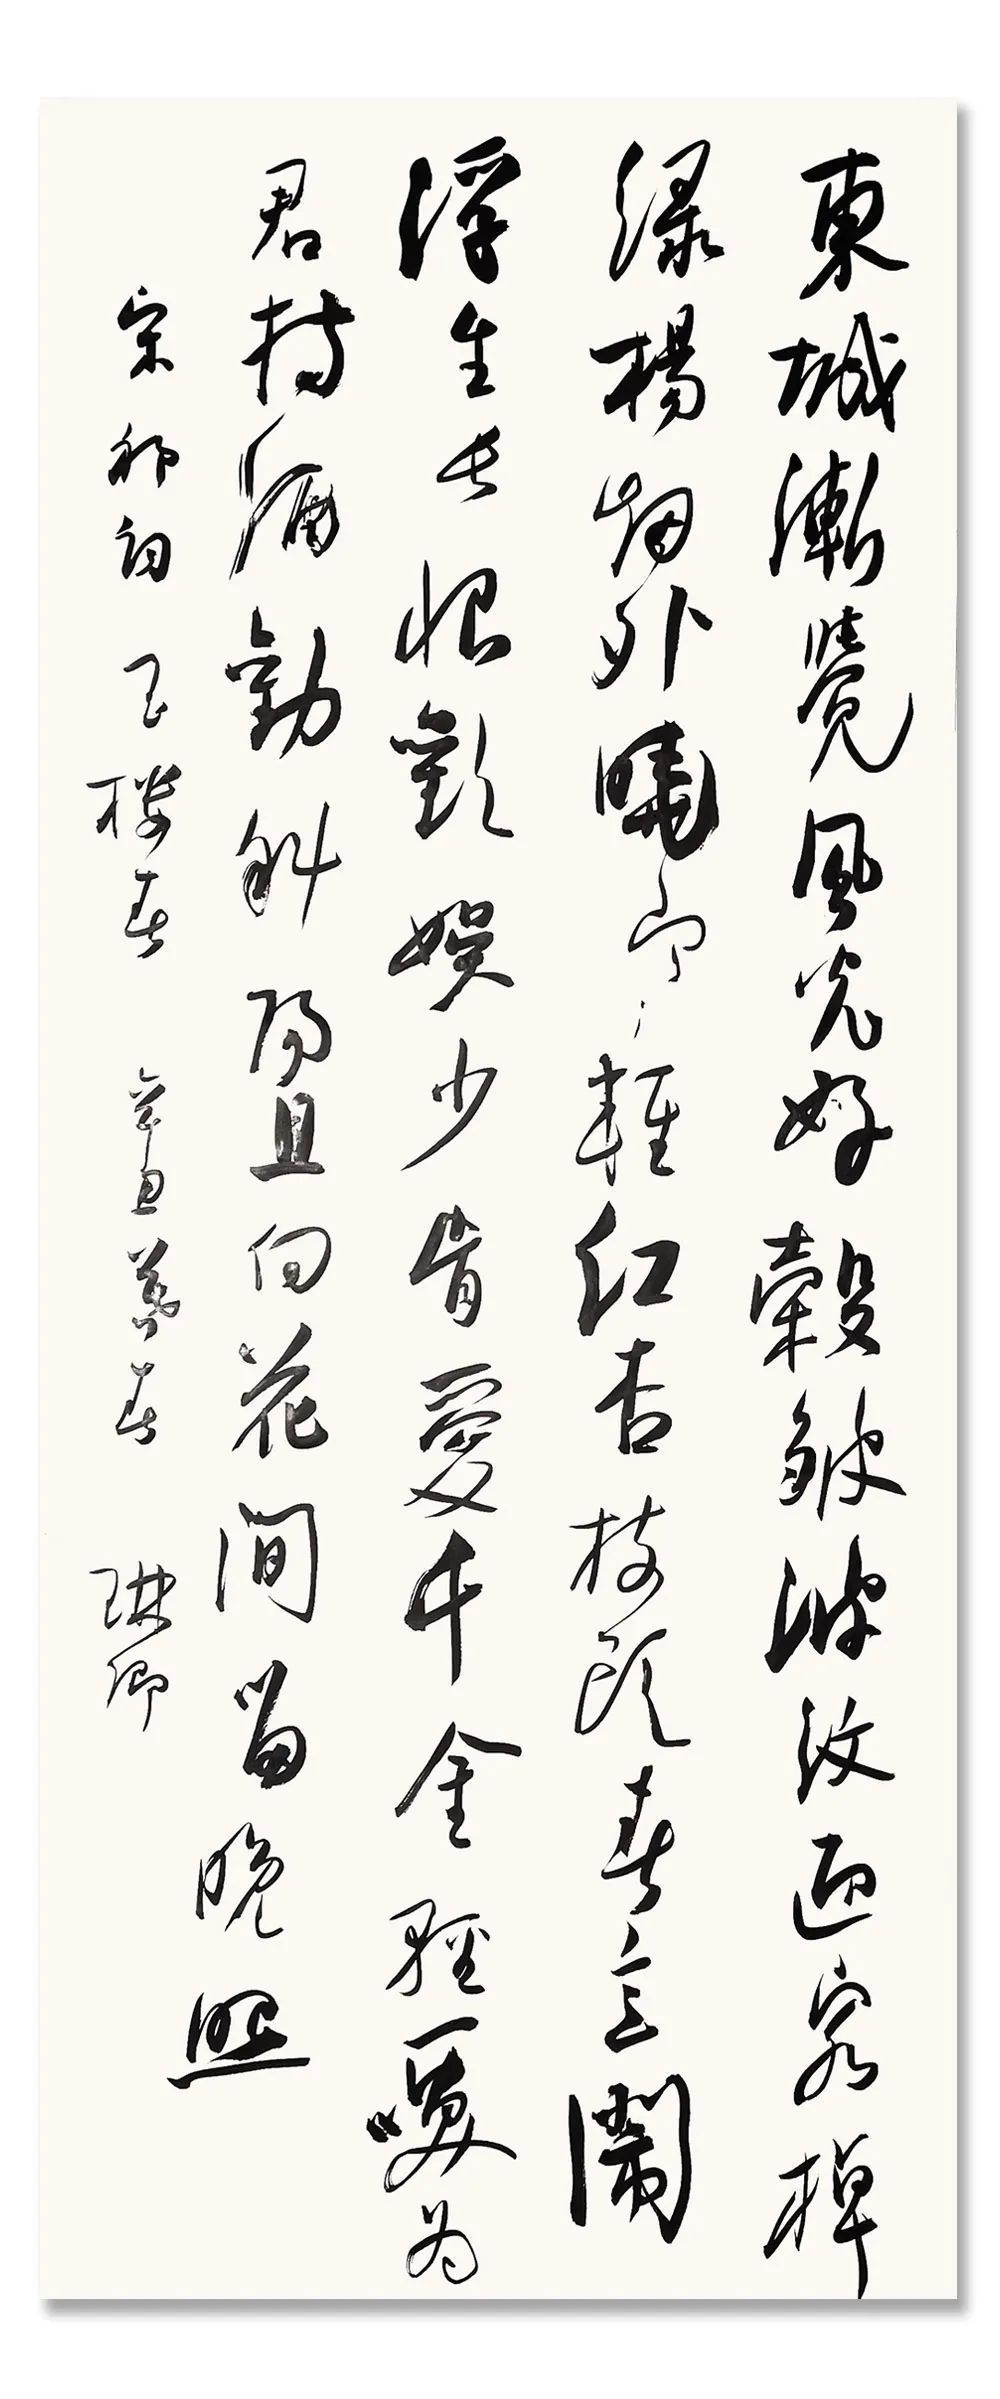 東城漸覺風光好縠皺波紋迎客棹
綠楊烟外曉寒輕紅杏枝頭春意鬧
浮生長恨歡娛少肯愛千金輕一笑为
君持酒勸斜陽且向花間留晚照
宋祁詞 玉樓春 辛丑暮春 琳卿